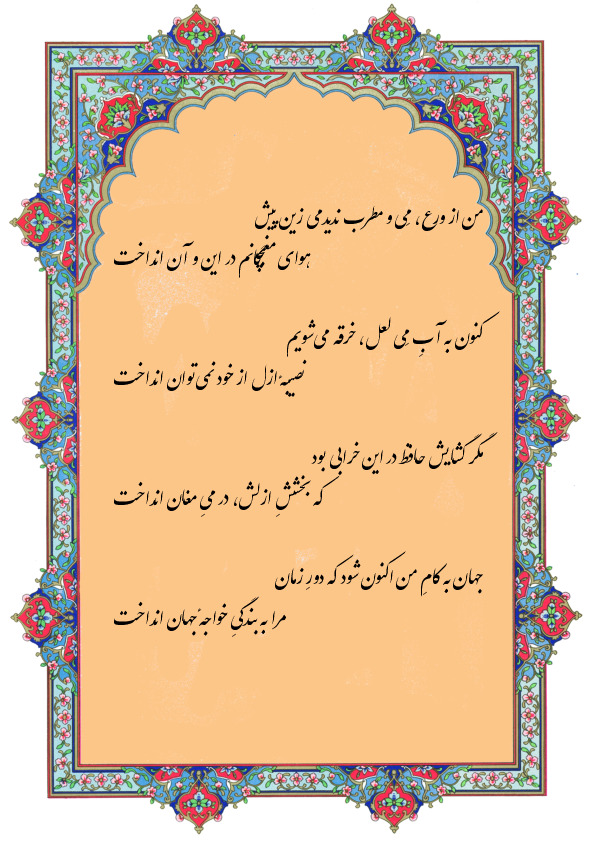 من از ورع، می و مطرب ندیدمی زین پیش
هوای مغبچگانم در این و آن انداخت
کنون به آبِ می لعل، خرقه می‌شویم
نصیبهٔ ازل از خود نمی‌توان انداخت
مگر گشایش حافظ در این خرابی بود
که بخششِ ازلش، در میِ مغان انداخت
جهان به کامِ من اکنون شود که دورِ زمان
مرا به بندگیِ خواجهٔ جهان انداخت